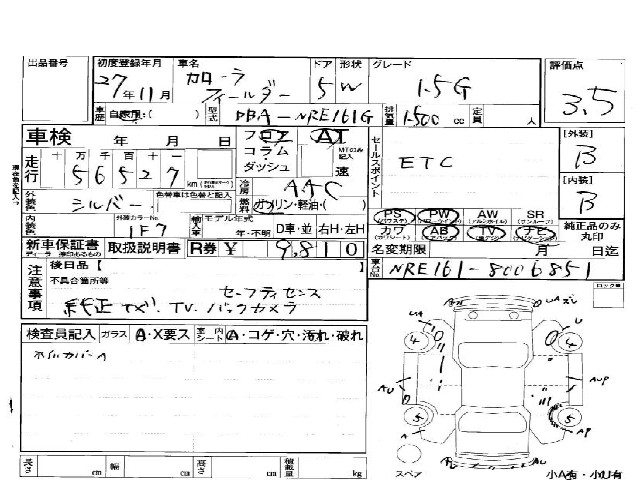 出品番号
初度登録年月 27年11月
車名 カローラ フィールダー
ドア 5 形状 W
グレード 1.5G
評価点 3.5
車歴 自家用・( )
型式 DBA-NRE161G
排気量 1500 cc
定員 人
車検 年 月 日
フロア AT
コラム
ダッシュ
MTのみ記入 速
走行 十万千百十一
56527 km
セールスポイント
ETC
[外装] B
[内装] B
外装色 シルバー
色替車は色替と記入
冷房 AAC
燃料 ガソリン・軽油・( )
内装色
外装カラーNo. 1F7
輸入車 モデル年式 年・不明 D車・並 右H・左H
PS PW AW SR
カワ AB TV ナビ
純正品のみ丸印
新車保証書 取扱説明書 R券 ¥ 9,810
名変期限 月 日迄
車台No. NRE161-8006851
注意事項
後日品【
不具合箇所等
セーフティセンス
純正ナビ.TV.バックカメラ
検査員記入 ガラス A・X要ス 室内シート A・コゲ・穴・汚れ・破れ
ホイルカバーA
長さ cm 幅 cm 高さ cm 積載量 kg
ロックNo.
UA
U
4
4
AU
AUP
5
5
A
AP
AU
スペア
小A有・小U有